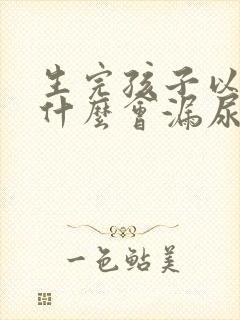 生完孩子以
什麼會漏尿
一色鮎美